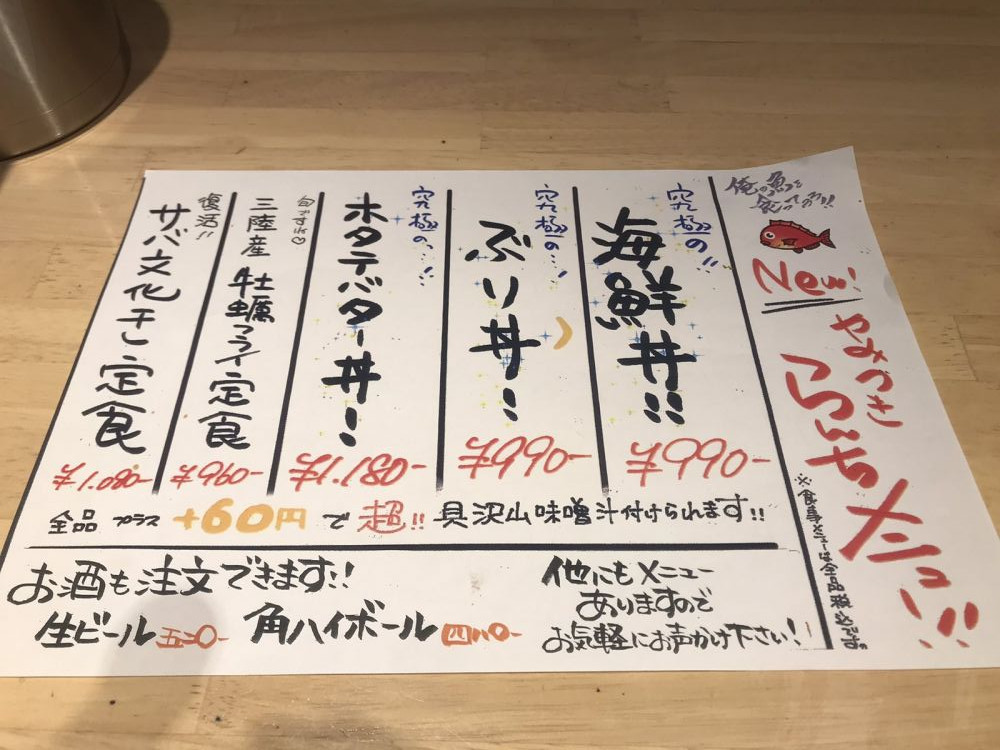 俺の魚を食ってみろ!!
New!
やみつき
らんちメニュー!!
※食事メニューは全品税込です。
究極の!!
海鮮丼!!
¥990-
究極の…!
ぶり丼!
¥990-
究極の…!
ホタテバター丼!
¥1,180-
旬ですよ♡
三陸産 牡蠣フライ定食
復活!!
サバ文化干定食
¥1,080-
全品 プラス +60円 で 超!! 具沢山味噌汁付けられます!!
お酒も注文できます!!
生ビール
角ハイボール
他にもメニュー
ありますので
お気軽にお声かけ下さい!